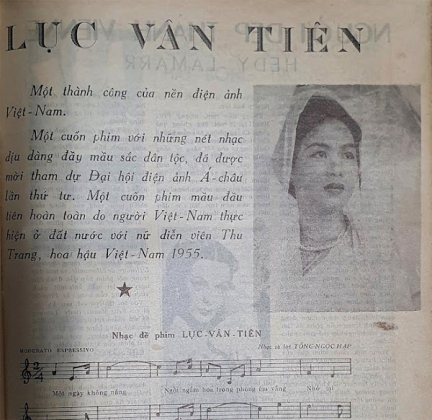 LỤC VÂN TIÊN
Một thành công của nền điện ảnh
Việt-Nam.
Một cuốn phim với những nét nhạc
dịu dàng đầy mầu sắc dân tộc, đã được
mời tham dự Đại hội điện ảnh Á-châu
lần thứ tư. Một cuốn phim mầu đầu
tiên hoàn toàn do người Việt-Nam thực
hiện ở đất nước với nữ diễn viên Thu
Trang, hoa hậu Việt-Nam 1955.
Nhạc đề phim LỤC-VÂN-TIÊN
MODERATO ESPRESSIVO
Nhạc và lời TỐNG-NGỌC-HẠP
Một ngày không nắng
Ngồi ngắm hoa trong phòng
vắng
Nhớ